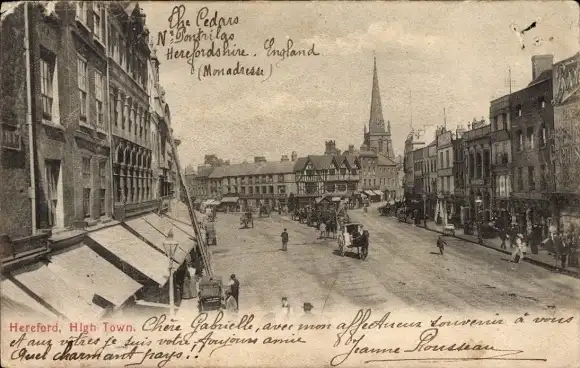 The Cedars
Nr Pontrilas
Herefordshire. England
(Mon adresse)
Hereford, High Town.
Chère Gabrielle, avec mon affectueux souvenir à vous
et aux vôtres je suis votre toujours amie
Quel charmant pays!!
Jeanne Rousseau